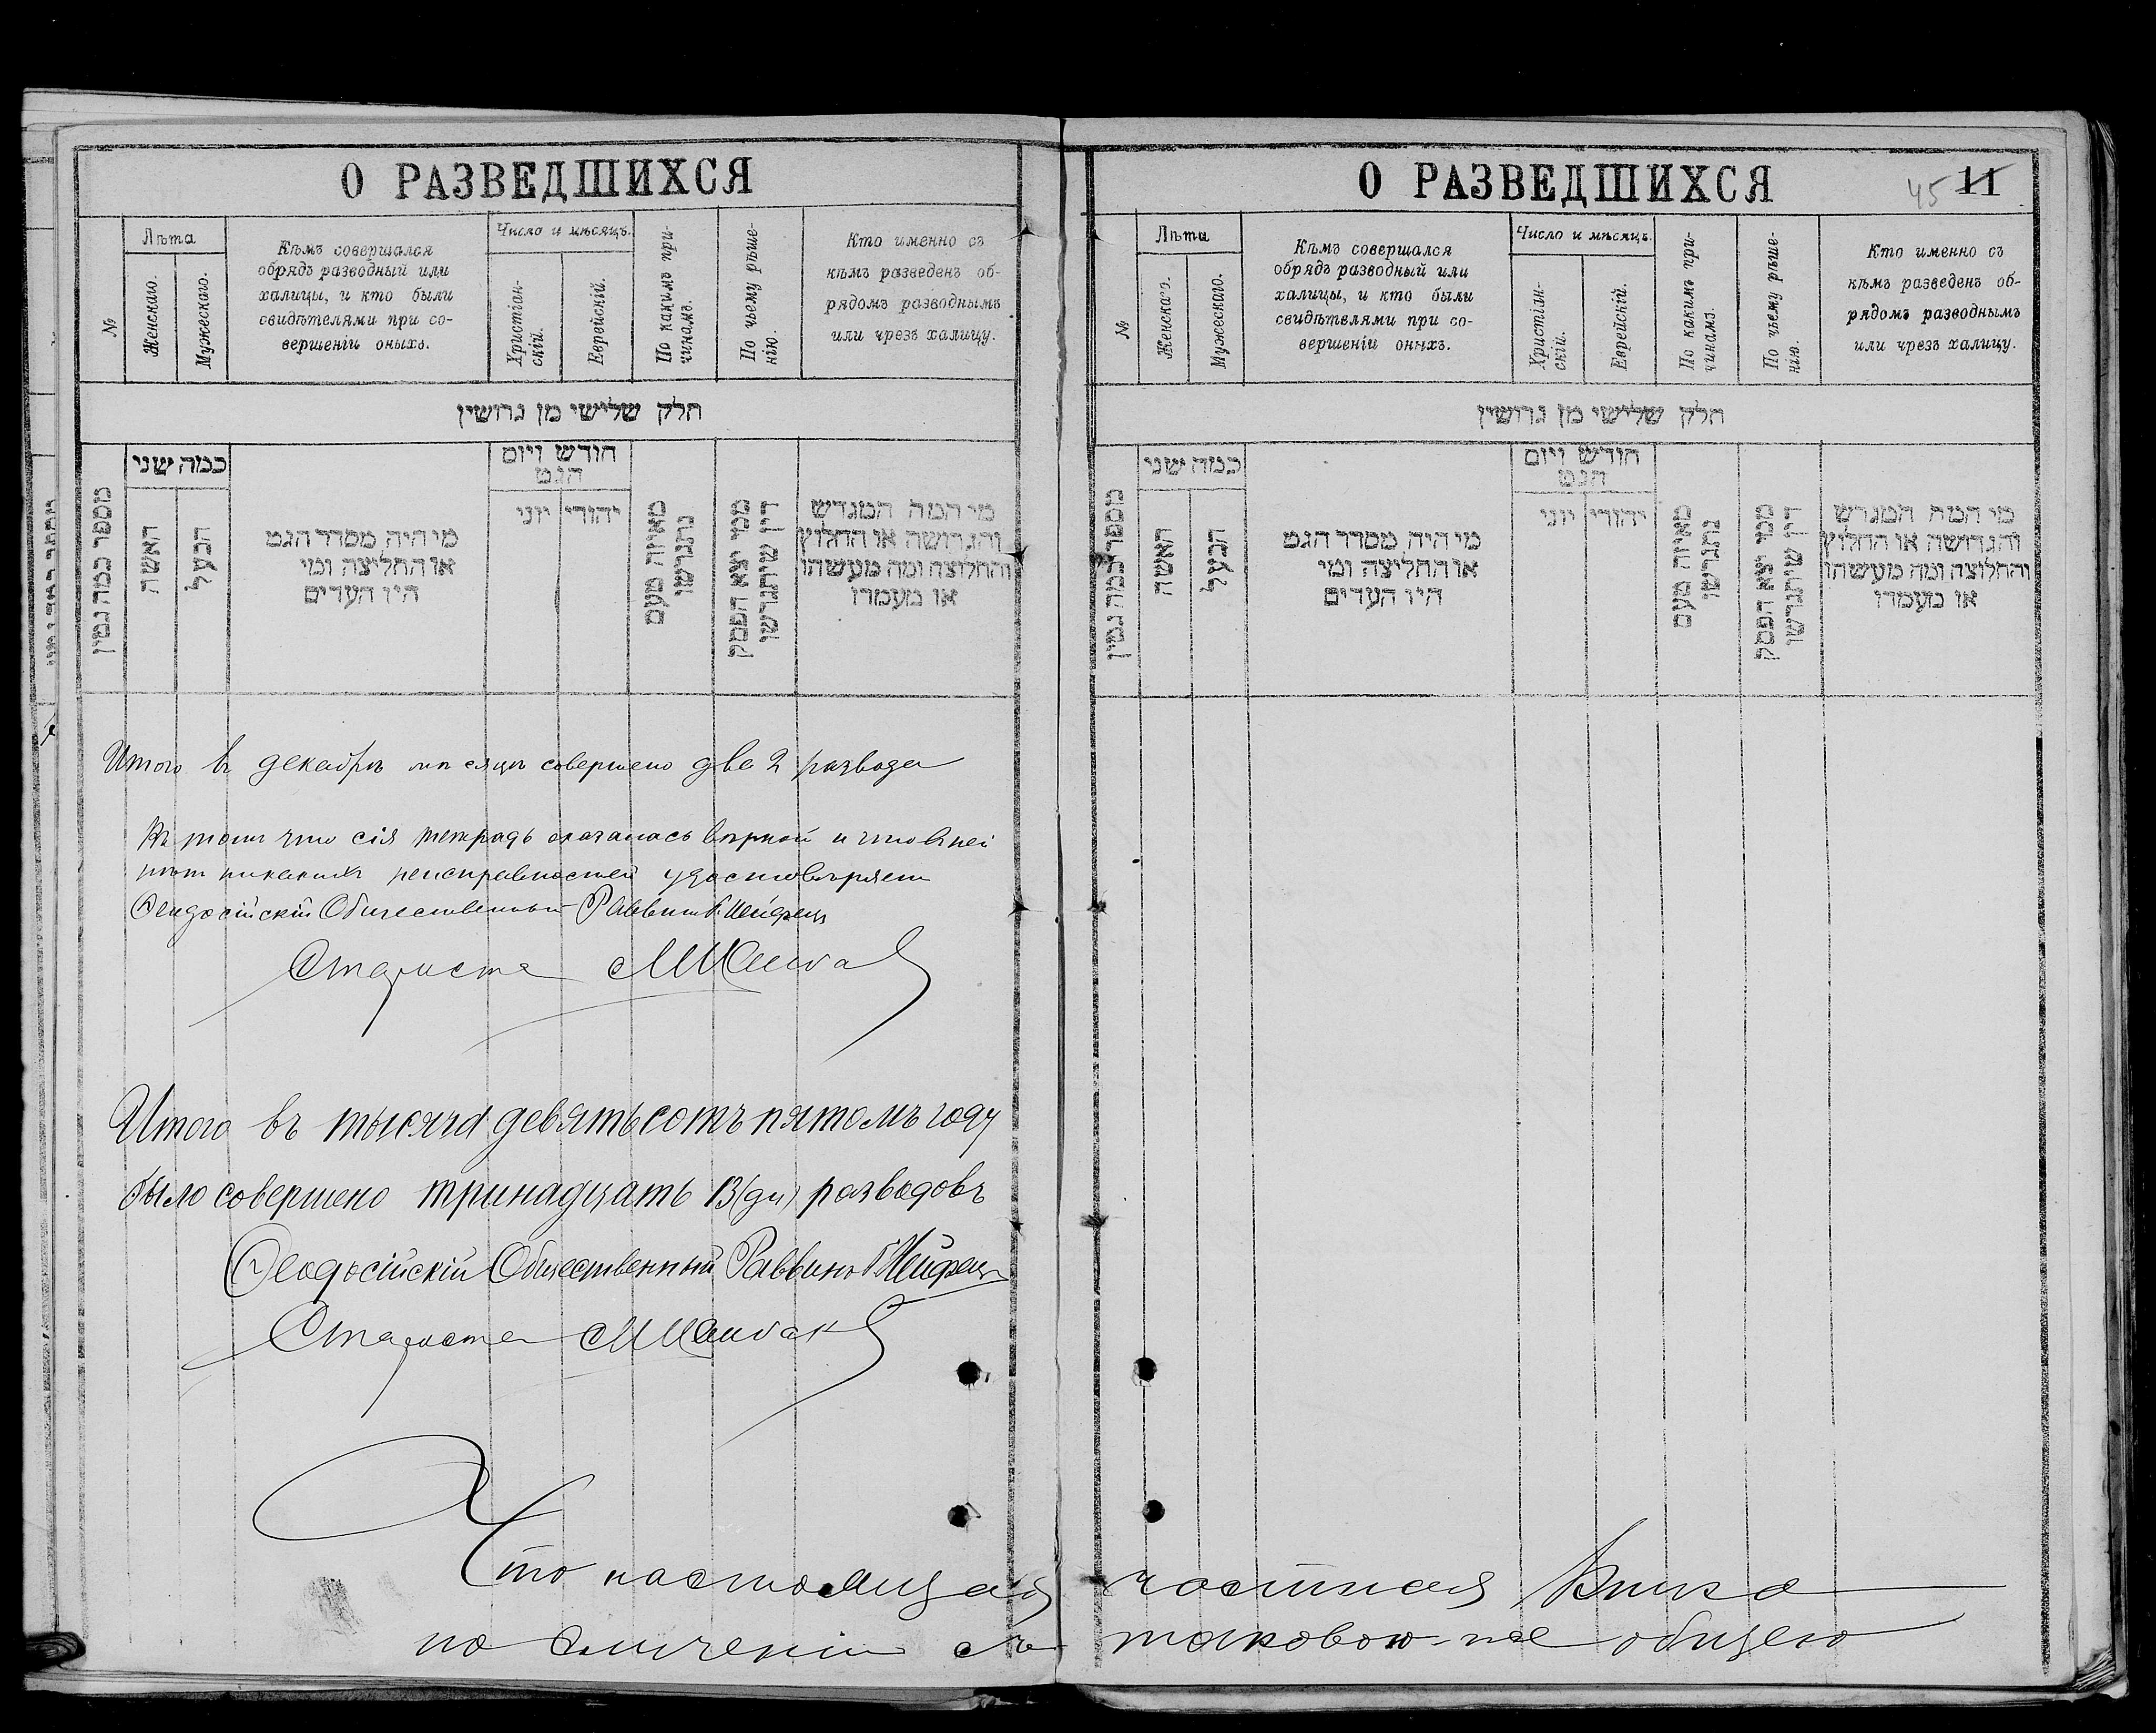 О РАЗВЕДШИХСЯ
№
Лѣта
Женскаго.
Мужескаго.
Кѣмъ совершался
обрядъ разводный или
халицы, и кто были
свидѣтелями при со-
вершеніи оныхъ.
Число и мѣсяцъ.
Христіан-
скій.
Еврейскій.
По какимъ при-
чинамъ.
По чьему рѣше-
нію.
Кто именно съ
кѣмъ разведенъ об-
рядомъ разводнымъ
или чрезъ халицу.
חלק שלישי מן גרושין
מספר כמה גטין
כמה שני
האשה
הבעל
מי היה מסדר הגט
או החליצה ומי
היו העדים
חודש ויום
הגט
יהודי
יוני
מאיזה טעם
נתגרשו
ממי יצא הפסק
דין שיתגרשו
מי המה המגרש
והגרושה או החלוץ
והחלוצה ומה מעשהו
או מעמדו
Итого въ декабрѣ мѣсяцѣ совершено два 2 развода
Въ томъ что сія тетрадь оказалась вѣрной и что въ ней
нѣтъ никакихъ неисправностей удостовѣряетъ
Ѳеодосійскій Общественный Раввинъ
Староста
Итого въ тысяча девятьсотъ пятомъ году
было совершено тринадцать 13 (ди) разводовъ
Ѳеодосійскій Общественный Раввинъ
Староста
Что настоящая частная книга
по сличеніи съ таковою-же общею
О РАЗВЕДШИХСЯ
45 11
№
Лѣта
Женскаго.
Мужескаго.
Кѣмъ совершался
обрядъ разводный или
халицы, и кто были
свидѣтелями при со-
вершеніи оныхъ.
Число и мѣсяцъ.
Христіан-
скій.
Еврейскій.
По какимъ при-
чинамъ.
По чьему рѣше-
нію.
Кто именно съ
кѣмъ разведенъ об-
рядомъ разводнымъ
или чрезъ халицу.
חלק שלישי מן גרושין
מספר כמה גטין
כמה שני
האשה
הבעל
מי היה מסדר הגט
או החליצה ומי
היו העדים
חודש ויום
הגט
יהודי
יוני
מאיזה טעם
נתגרשו
ממי יצא הפסק
דין שיתגרשו
מי המה המגרש
והגרושה או החלוץ
והחלוצה ומה מעשהו
או מעמדו